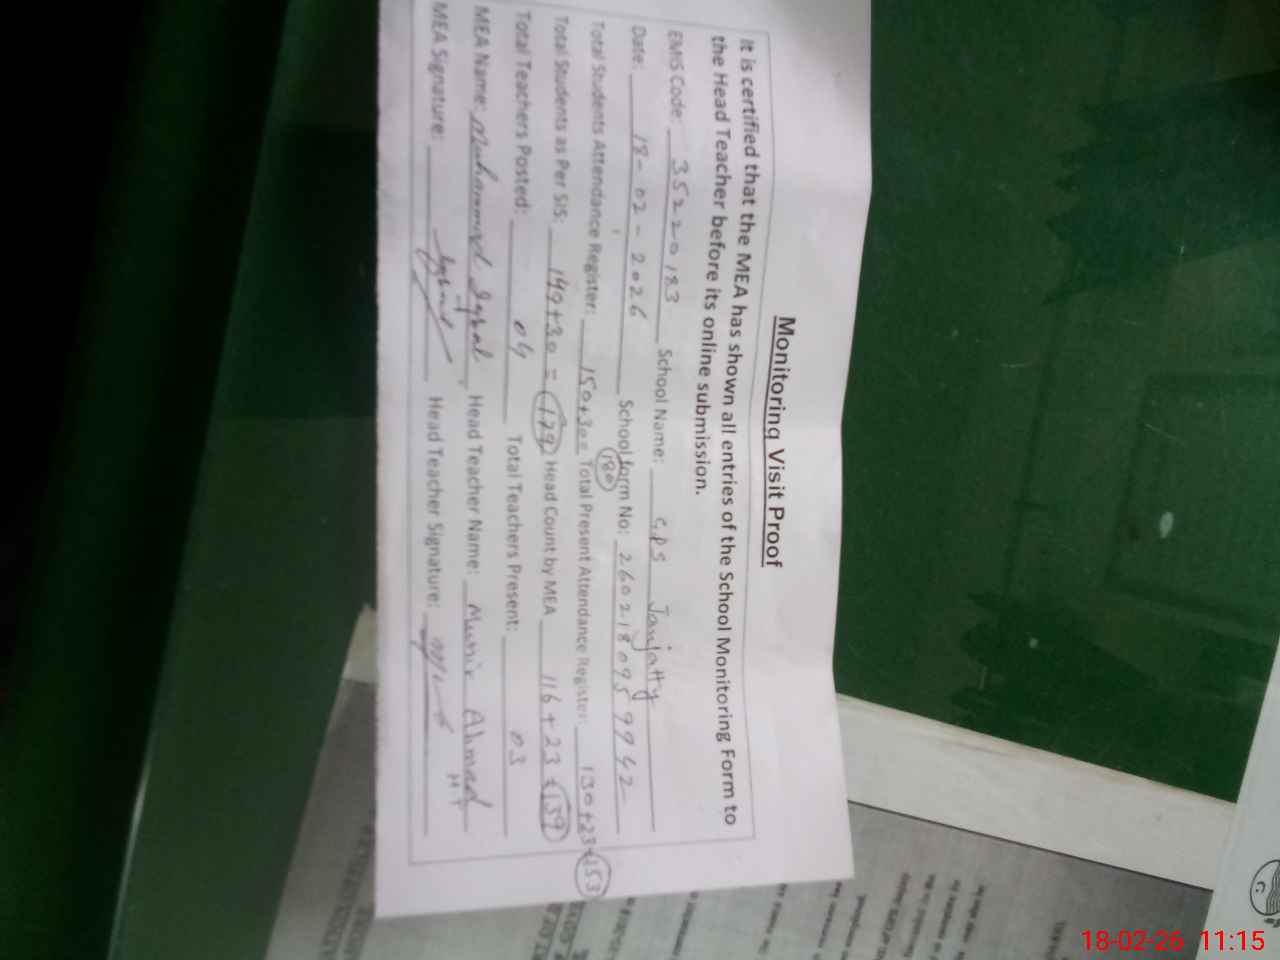 Monitoring Visit Proof
It is certified that the MEA has shown all entries of the School Monitoring Form to
the Head Teacher before its online submission.
EMIS Code: 35220183 School Name: GPS Janjatty
Date: 18-02-2026 School form No: 260218095 9942
Total Students Attendance Register: 150+30= 180 Total Present Attendance Register: 130+23= 153
Total Students as Per SIS: 149+30 = 179 Head Count by MEA 116+23 = 139
Total Teachers Posted: 04 Total Teachers Present: 03
MEA Name: Muhammad Iqbal Head Teacher Name: Munir Ahmad HT
MEA Signature: Head Teacher Signature:
18-02-26 11:15